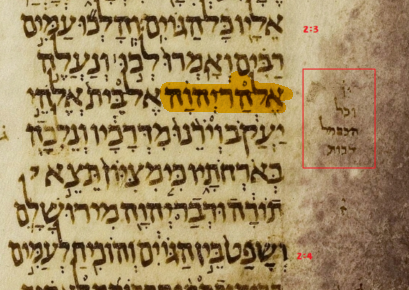 אליו כל הגוים והלכו עמים
2:3
רבים ואמרו לכו ונעלה
אל הר יהוה אל בית אלהי
יעקב וירנו מדרכיו ונלכה
בארחתיו כי מציון תצא
תורה ודבר יהוה מירושלם
ושפט בין הגוים והוכיח לעמים
2:4